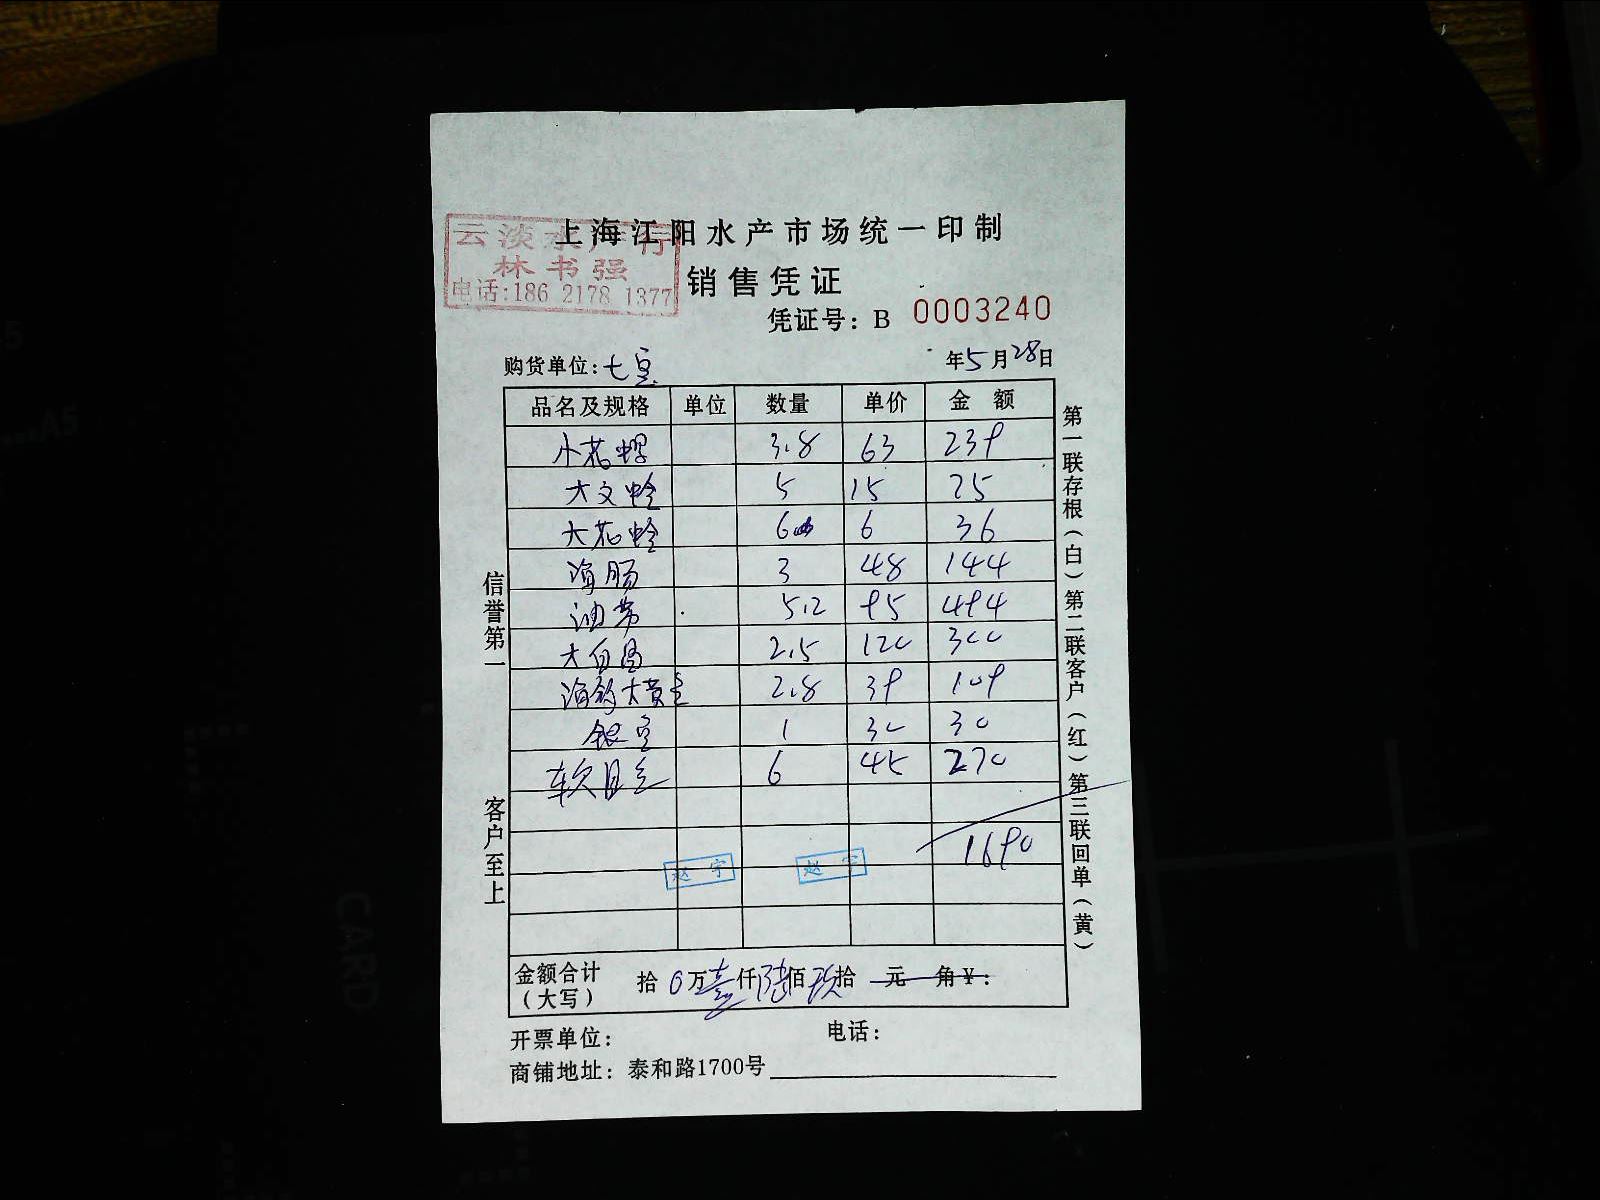 上海江阳水产市场统一印制
云淡水产行
林书强
电话:186 2178 1377
销售凭证
凭证号：B 0003240
购货单位：七宝 年5月28日
品名及规格 单位 数量 单价 金额
小花螺 3.8 63 239
大文蛤 5 15 75
大花蛤 6 6 36
海肠 3 48 144
油带 5.2 95 494
大白 2.5 120 300
海 大黄 2.8 39 109
银 1 30 30
软 6 45 270
1690
赵宇 赵宇
金额合计（大写） 拾0万壹仟陆佰玖拾 元 角¥：
开票单位： 电话：
商铺地址：泰和路1700号
信誉第一 客户至上
第一联存根（白）第二联客户（红）第三联回单（黄）